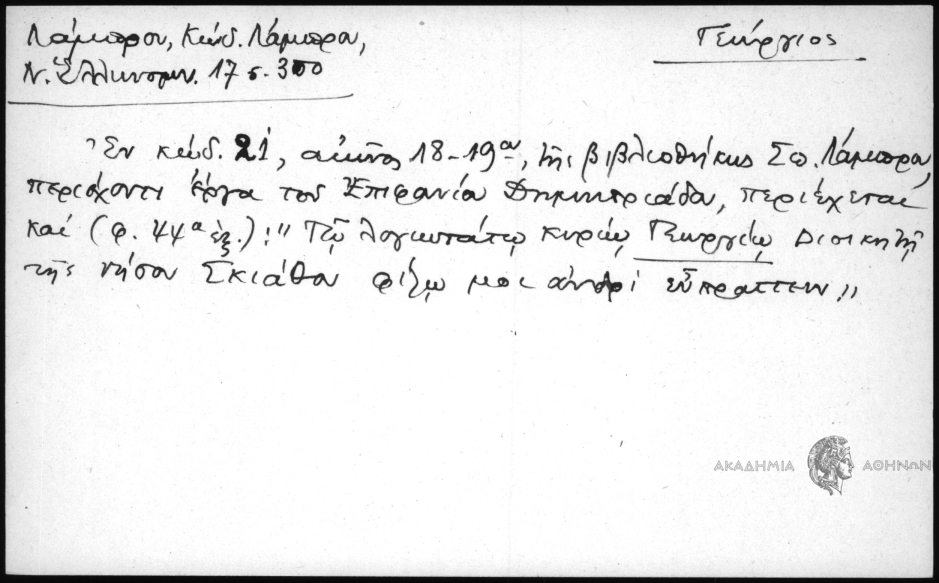 Λάμπρου, Κώδ. Λάμπρου,
Γεώργιος
Ν. Ἑλληνομν. 17 σ. 300
Ἐν κώδ. 21, αἰῶνος 18-19ου, τῆς βιβλιοθήκης Σπ. Λάμπρου,
περιέχοντι ἔργα τοῦ Ἐπιφανίου Δημητριάδου, περιέχεται
καί (φ. 44α ἑξ.): "Τῷ λογιωτάτῳ κυρίῳ Γεωργίῳ Διοικητῇ
τῆς νήσου Σκιάθου φίλῳ μοι ἀνδρί εὖ πράττειν"
ΑΚΑΔΗΜΙΑ ΑΘΗΝΩΝ